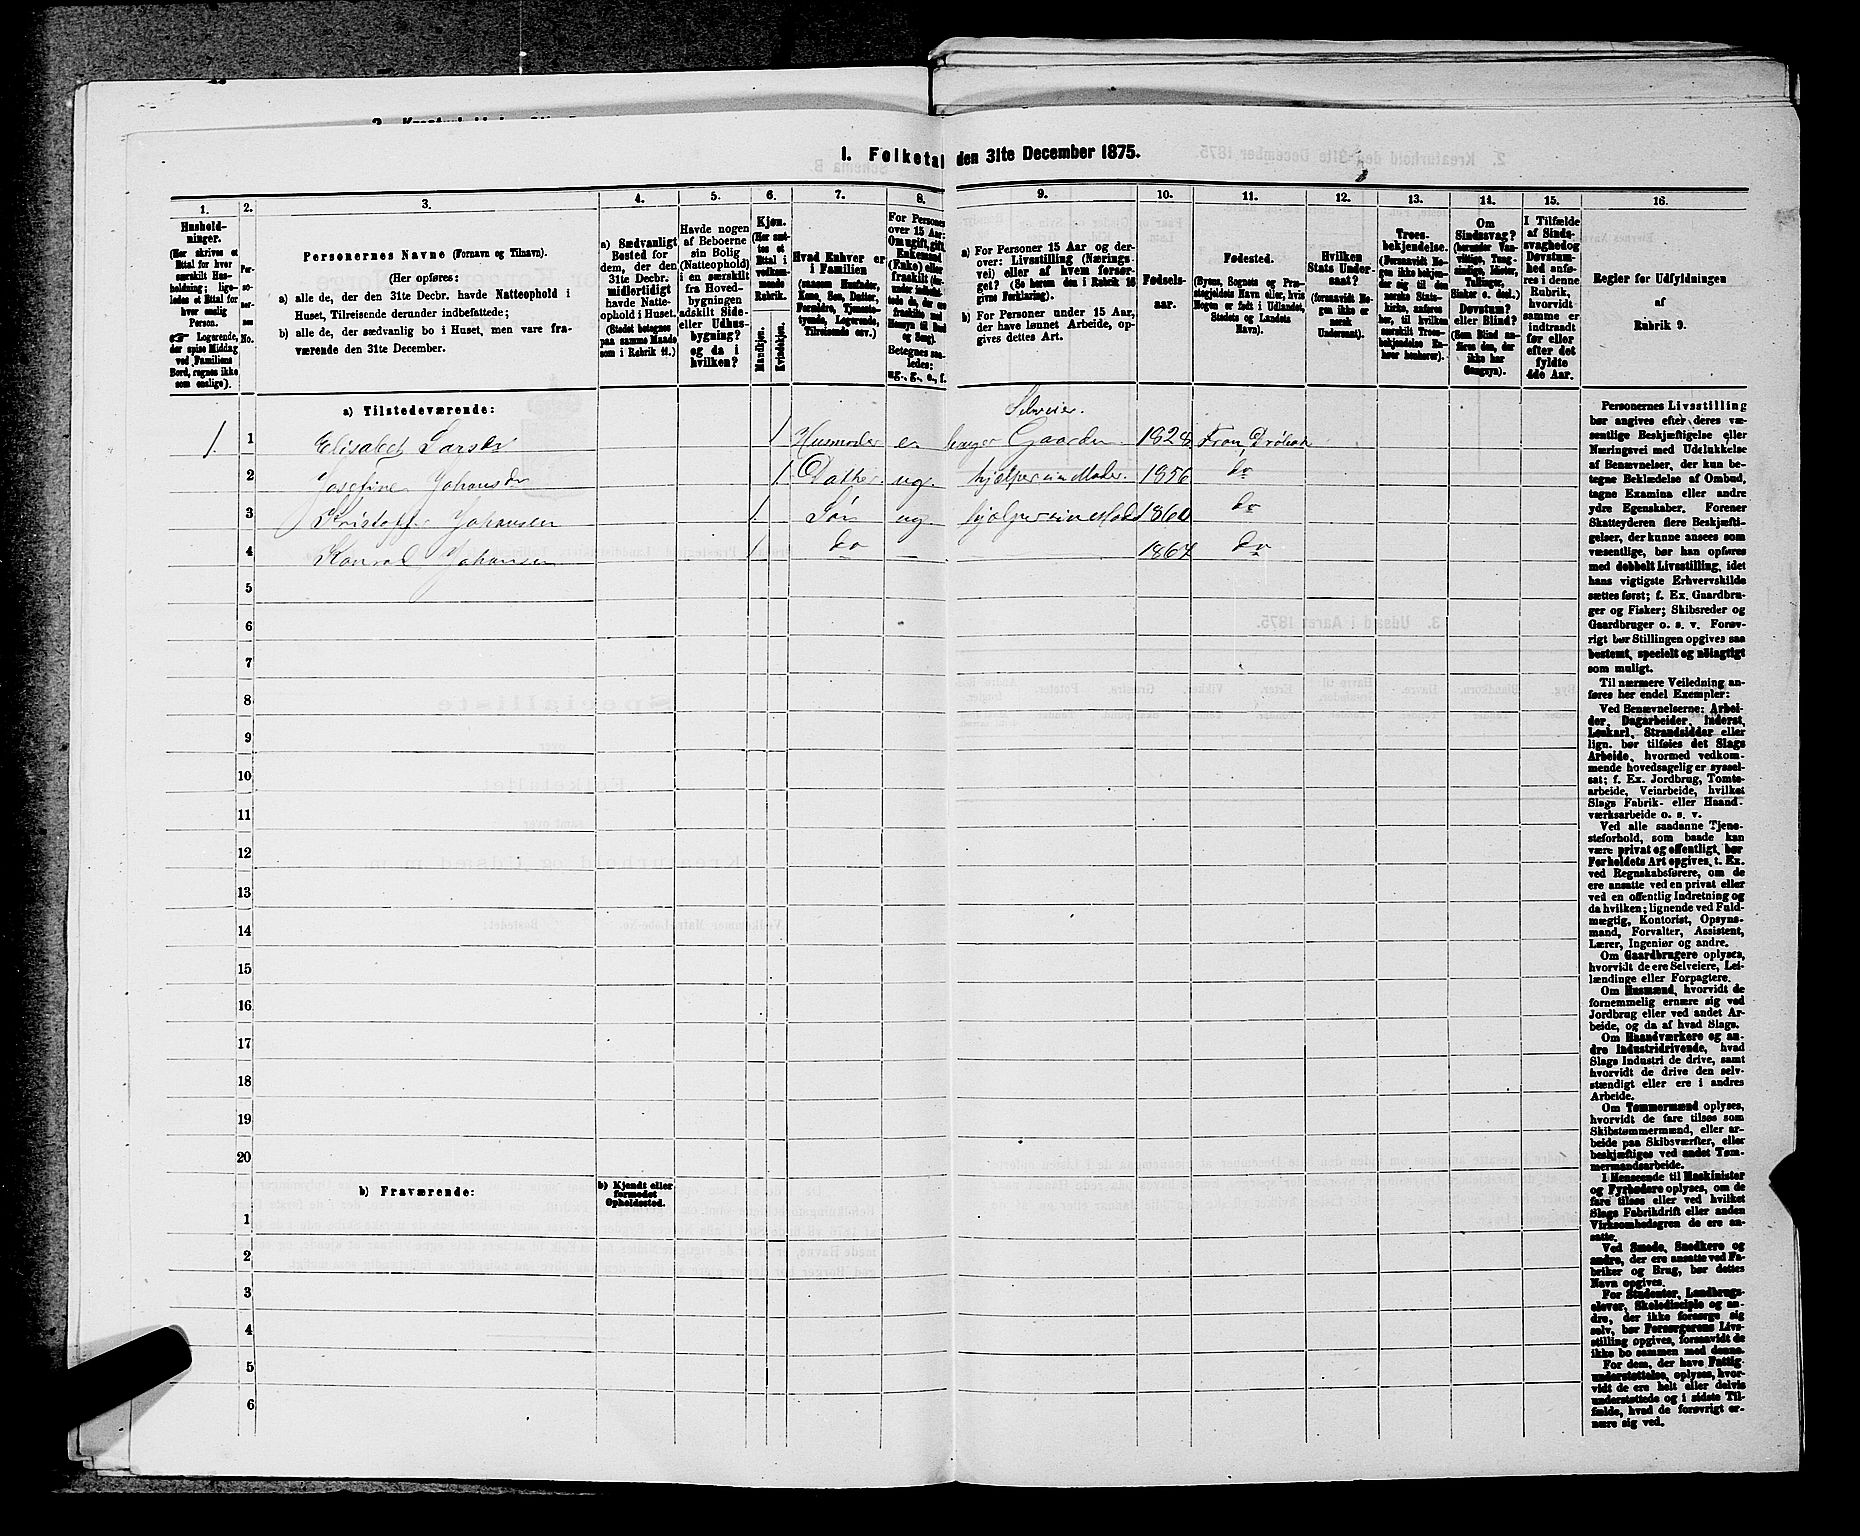 1. Folketal den 31te December 1875.
1. 2. 3. 4. 5. 6. 7. 8. 9. 10. 11. 12. 13. 14. 15. 16.
Hushold-
ninger.
(Her skrives et
Ettal for hver
særskilt Hus-
holdning; lige-
ledes et Ettal for
hver enslig
Person.
☞ Logerende,
der spise Middag
ved Familiens
Bord, regnes ikke
som enslige).
Per-
so-
ner-
nes
No.
Personernes Navne (Fornavn og Tilnavn).
(Her opføres:
a) alle de, der den 31te Decbr. havde Natteophold i
Huset, Tilreisende derunder indbefattede;
b) alle de, der sædvanlig bo i Huset, men vare fra-
værende den 31te December.
a) Sædvanligt
Bosted for
dem, der den
31te Decbr.
midlertidigt
havde Natte-
ophold i Huset.
(Stedet betegnes
paa samme Maade
som i Rubrik 11.)
Havde nogen
af Beboerne
sin Bolig
(Natteophold)
i en særskilt
fra Hoved-
bygningen
adskilt Side-
eller Udhus-
bygning?
og da i
hvilken?
Kjøn.
(Her sæt-
tes et
Ettal i
vedkom-
mende
Rubrik.
Mandkjøn.
Kvindekjøn.
Hvad Enhver er
i Familien
(saasom Husfader,
Kone, Søn, Datter,
Forældre, Tjeneste-
tyende, Logerende,
Tilreisende osv.)
For Personer
over 15 Aar:
Om ugift, gift,
Enkemand
(Enke) eller
fraskilt
Betegnes saa-
ledes:
ug., g., e., f.
a) For Personer 15 Aar og der-
over: Livsstilling (Nærings-
vei) eller af hvem forsør-
get? (Se herom den i Rubrik 16
givne Forklaring).
b) For Personer under 15 Aar,
der have lønnet Arbeide, op-
gives dettes Art.
Fødsels-
aar.
Fødested.
(Byens, Sognets og Præ-
stegjeldets Navn eller, hvis
Nogen er født i Udlandet,
Stedets og Landets
Navn).
Hvilken
Stats Under-
saat?
(forsaavidt No-
gen ikke er
norsk
Undersaat).
Troes-
bekjendelse.
(Forsaavidt No-
gen ikke bekjen-
der sig til den
norske Stats-
kirke, anføres
her, til hvilken
særskilt Troes-
bekjendelse En-
hver henhører).
Om
Sindssvag?
(herunder Van-
vittige, Tung-
sindige, Idioter,
Taktinger,
Sinker o. desl.)
Døvstum?
eller Blind?
(Som Blind an-
føres den, der
ikke har
Gangsyn).
I Tilfælde
af Sinds-
svaghed og
Døvstum-
hed anfø-
res i denne
Rubrik,
hvorvidt
samme er
indtraadt
før eller
efter det
fyldte
4de Aar.
Regler for Udfyldningen
af
Rubrik 9.
a) Tilstedeværende:
Selveier.
1. 1 Elisabet Larsdr 1 Husmoder e bruger Gaarden. 1828 Fron Drøbak
2 Josefine Johansdr 1 Datter ug hjælper sin Moder. 1856 do
3 Kristoffer Johansen 1 Søn ug hjælper sin Mod 1860 do
4 Konrad Johansen 1 do — 1864 do
5
6
7
8
9
10
11
12
13
14
15
16
17
18
19
20
b) Fraværende:
b) Kjendt eller
formodet
Opholdssted.
1
2
3
4
5
6
Personernes Livsstilling
bør angives efter deres væ-
sentlige Beskjæftigelse eller
Næringsvei med Udelukkelse
af Benævnelser, der kun be-
tegne Beklædelse af Ombud,
tagne Examina eller andre
ydre Egenskaber. Forener
Skatteyderen flere Beskjæfti-
gelser, der kunne ansees som
væsentlige, bør han opføres
med dobbelt Livsstilling, idet
hans vigtigste Erhvervskilde
sættes først; f. Ex. Gaardbru-
ger og Fisker; Skibsreder og
Gaardbruger o. s. v. Forøv-
rigt bør Stillingen opgives saa
bestemt, specielt og nøiagtigt
som muligt.
Til nærmere Veiledning an-
føres her endel Exempler:
Ved Benævnelserne: Arbei-
der, Dagarbeider, Inderst,
Løskarl, Strandsidder eller
lign. bør tilføies det Slags
Arbeide, hvormed vedkom-
mende hovedsagelig er syssel-
sat; f. Ex. Jordbrug, Tomte-
arbeide, Veiarbeide, hvilket
Slags Fabrik- eller Haand-
værksarbeide o. s. v.
Ved alle saadanne Tjene-
steforhold, som baade kan
være privat og offentligt, bør
Forholdets Art opgives, t. Ex.
ved Regnskabsførere, om de
ere ansatte ved en privat eller
ved en offentlig Indretning og
da hvilken; lignende ved Fuld-
mægtig, Kontorist, Opsyns-
mand, Forvalter, Assistent,
Lærer, Ingeniør og andre.
Om Gaardbrugere oplyses,
hvorvidt de ere Selveiere, Lei-
lændinge eller Forpagtere.
Om Husmænd, hvorvidt de
fornemmelig ernære sig ved
Jordbrug eller ved andet Ar-
beide, og da af hvad Slags.
Om Haandværkere og an-
dre Industridrivende, hvad
Slags Industri de drive, samt
hvorvidt de drive den selv-
stændigt eller ere i andres
Arbeide.
Om Tømmermænd oplyses,
hvorvidt de fare tilsøs som
Skibstømmermænd, eller ar-
beide paa Skibsværfter, eller
beskjæftiges ved andet Tøm-
mermandsarbeide.
I Henseende til Maskinister
og Fyrbødere oplyses, om de
fare tilsøs eller ved hvilket
Slags Fabrikdrift eller anden
Virksomhedsgren de ere an-
satte.
Ved Smede, Snedkere og
andre, der ere ansatte ved Fa-
briker og Brug, bør dettes
Navn opgives.
For Studenter, Landbrugs-
elever, Skoledisciple og an-
dre, der ikke forsørge sig
selv, bør Forsørgerens Livs-
stilling opgives, forsaavidt de
ikke bo sammen med denne.
For dem, der have Fattig-
understøttelse, oplyses, hvor-
vidt de ere helt eller delvis
understøttede og i sidste Til-
fælde, hvad de forøvrigt er-
nære sig ved.